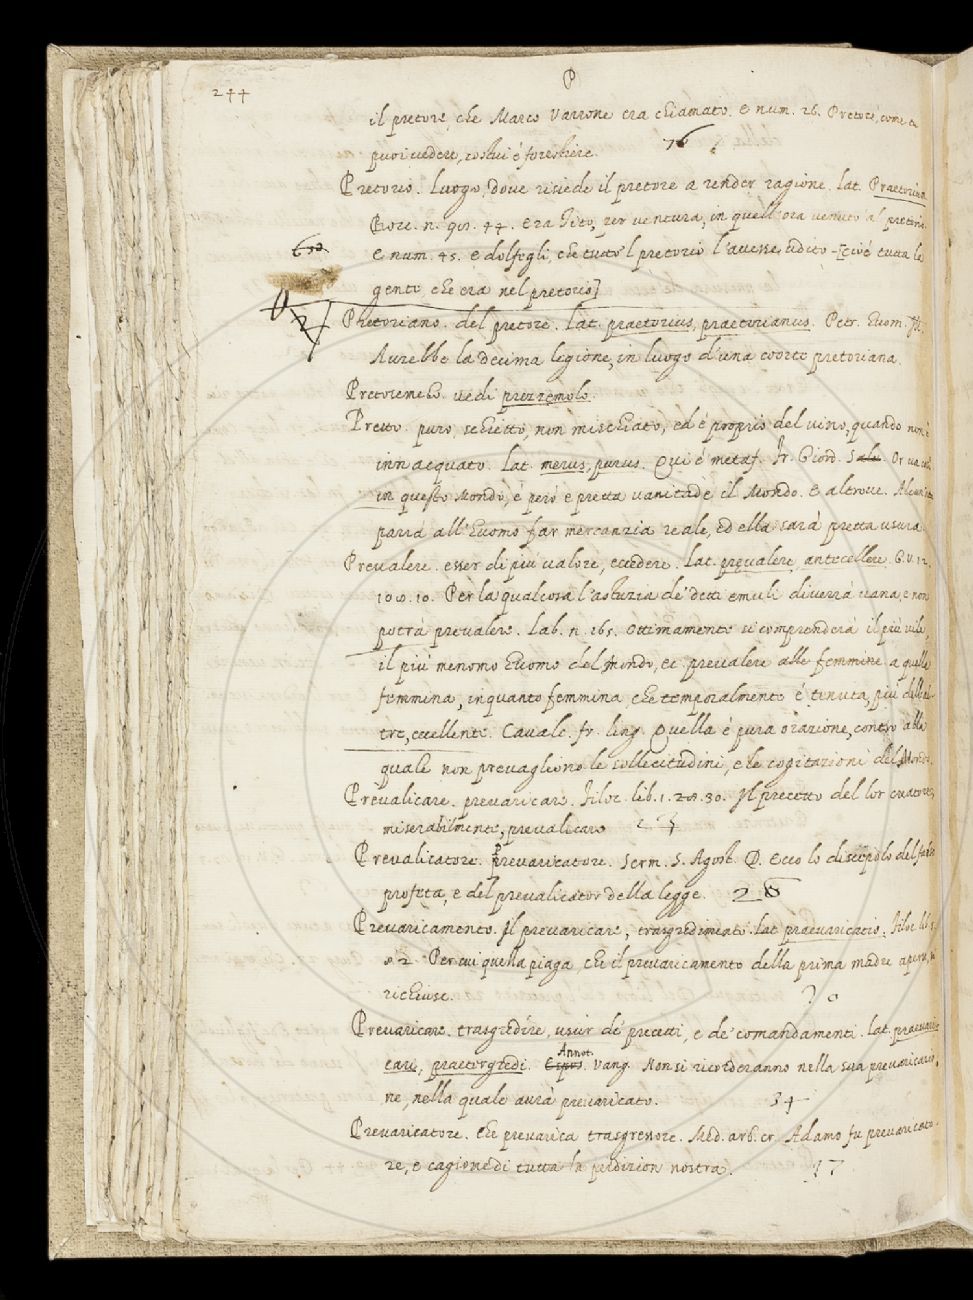 244
P
il pretore, che Marco Varrone era chiamato. E num. 26. Pretore, come tu
puoi vedere, costui é forestiere. 76
Pretorio. luogo, dove risiede il pretore a render ragione. lat. Praetorium
Bocc. n. 98. 44. era Tito, per ventura, in quell'ora venuto al pretorio
E num. 45. e dolsegli, che tutto 'l pretorio l'avesse udito [cioé tutta la
gente che era nel pretorio]
Pretoriano. del pretore. lat. praetorius, praetorianus. Petr. Huom. Ill.
2
Aurebbe la decima legione, in luogo d'una coorte pretoriana.
Pretosemolo. vedi prezzemolo.
Pretto. puro, schietto, non mischiato, ed é proprio del vino, quando non é
innacquato. lat. merus, purus. Qui é metaf. Fr. Giord. Or va cosí
in questo Mondo, é peró e pretta vanitade il Mondo. E altrove. Alcun
parrá all'Huomo far mercanzia reale, ed ella sará pretta usura
Prevalere. esser di piú valore, eccedere. lat. prevalere, antecellere. G.V. 12.
108. 10. Per la qual cosa l'astuzia de' detti emuli diverrá vana, e non
potrá prevalere. Lab. n. 265. Ottimamente si comprenderá il piú vile,
il piú menomo Huomo del mondo, ec prevalere alle femmine a quella
femmina, in quanto femmina che temporalmente é tenuta, piú dell'al-
tre, eccellente. Cavalc. fr. ling. Quella é pura orazione, contro alla
quale non prevagliono le sollecitudini, e le cogitazioni del Mondo.
Prevalicare. prevaricare. Filoc. lib. 1. 28. 30. Il precetto del lor creatore,
miserabilmente, prevalicaro
Prevalicatore. Prevaricatore. Serm. S. Agost. D. Ecco lo discepolo del falso
profeta, e del prevalicator della legge. 28
Prevaricamento. Il prevaricare, trasgredimento. lat praevaricatio. Filoc lib. 5.
82. Per cui quella piaga, che il prevaricamento della prima madre aperse, si
richiuse. 30
Prevaricare. trasgredire, uscir de' precetti, e de' comandamenti. lat. praevari-
cari, praetergredi. Annot. Vang. Non si ricorderanno nella sua prevaricazio-
ne, nella quale avrá prevaricato. 34
Prevaricatore. Che prevarica trasgressore. Med. arb. cr Adamo fu prevaricato-
re, e cagione di tutta la perdizion nostra. 37